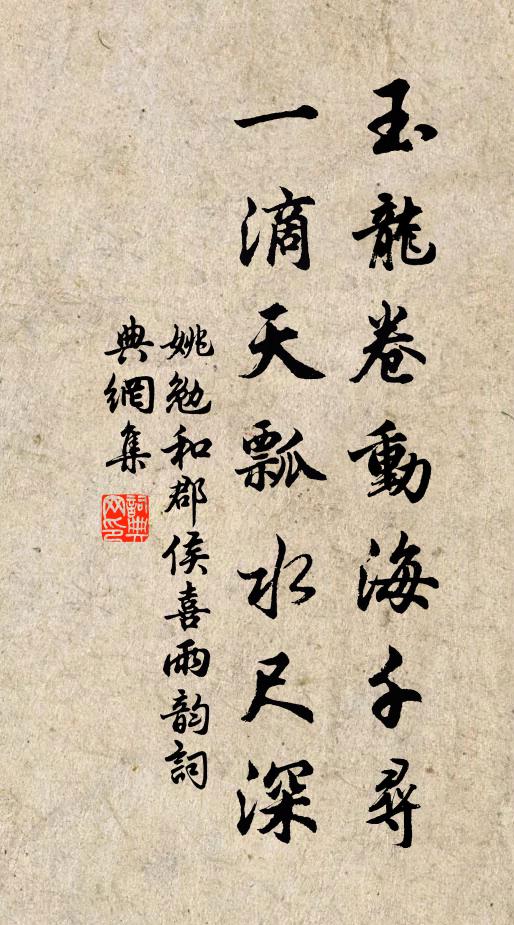 玉龍卷動海千尋
一滴天瓢水尺深
姚勉和郡侯喜雨韵詞
典網集
詞典网印